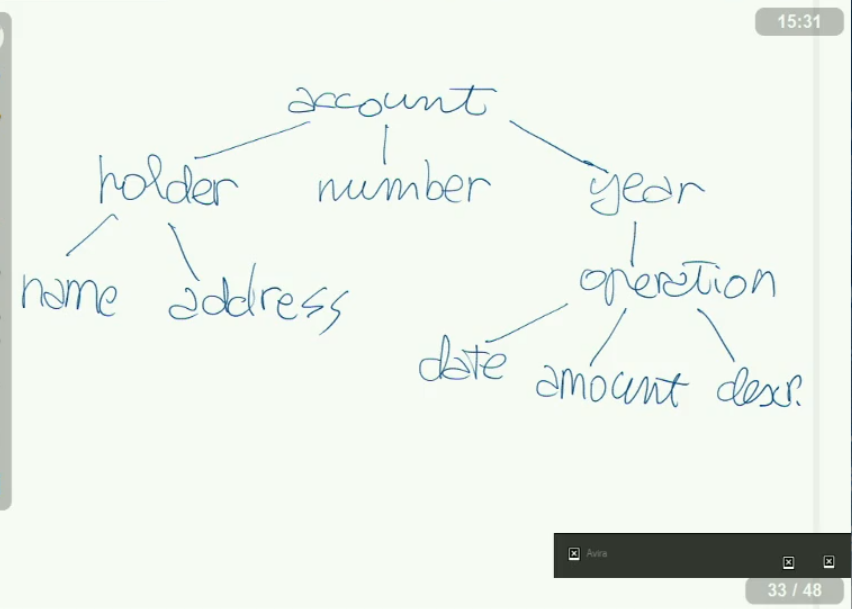 15:31
account
holder number year
name address operation
date amount descr.
Avira
33 / 48